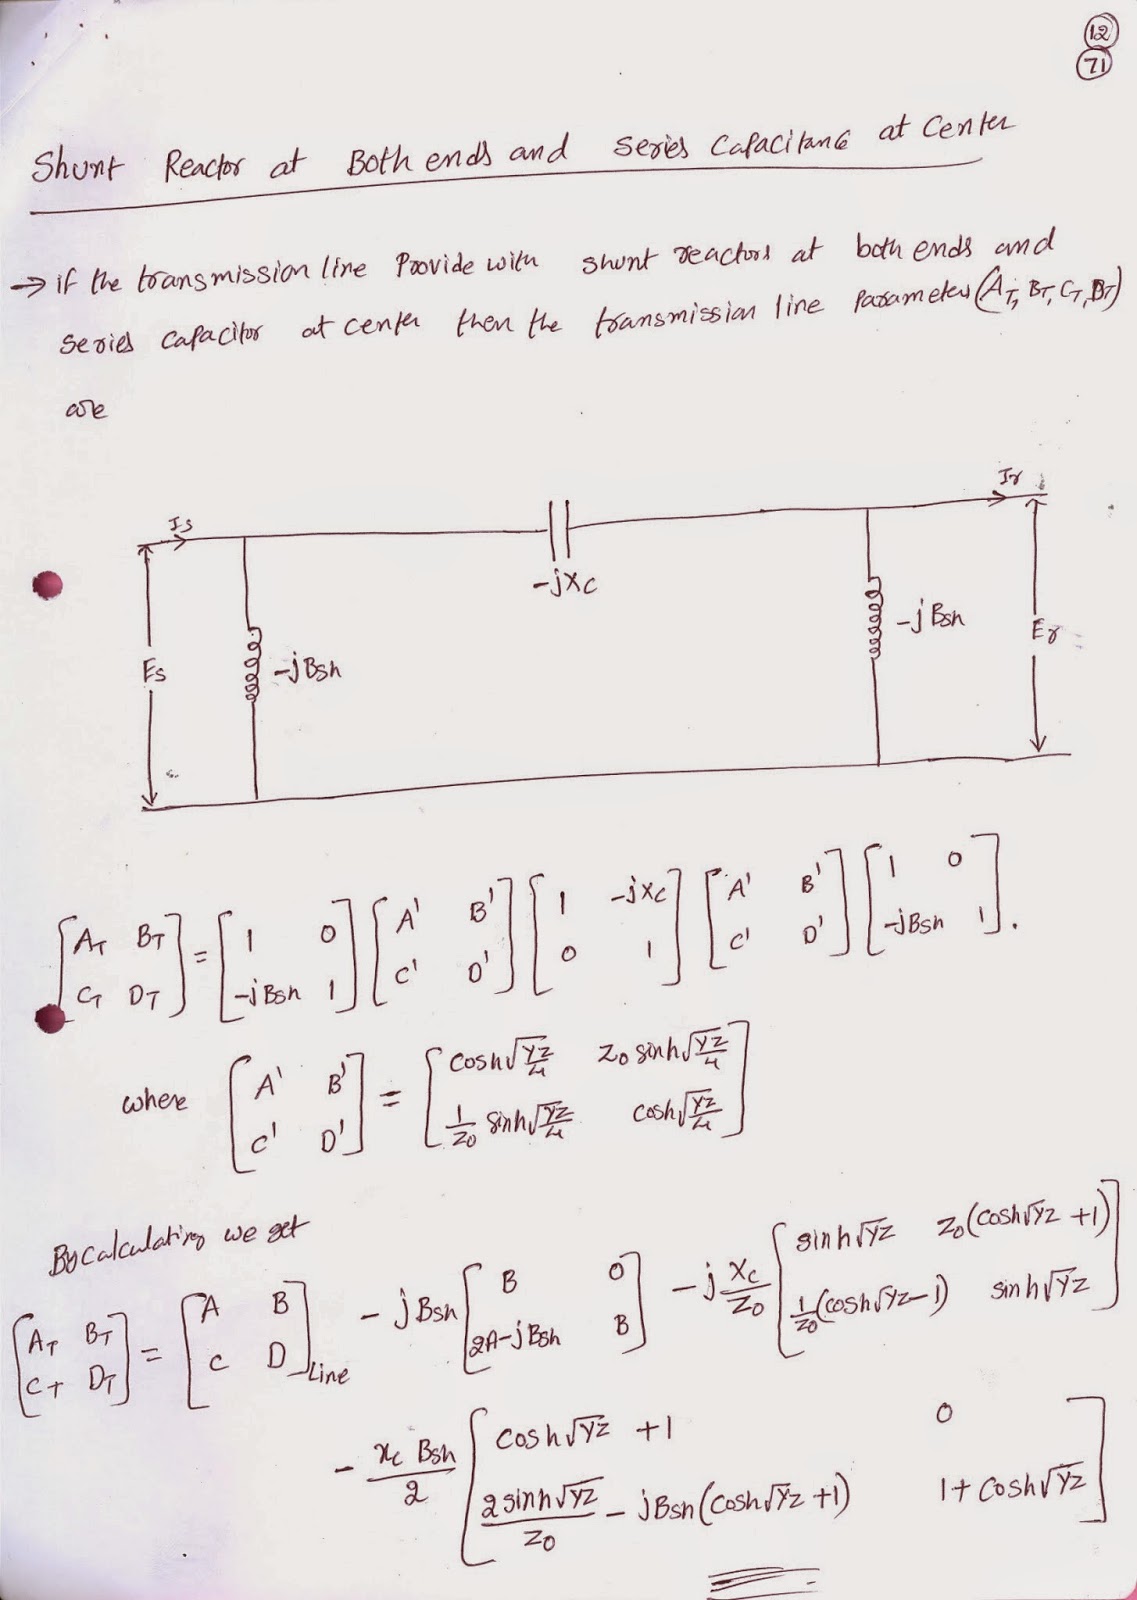 12
71
Shunt Reactor at Both ends and Series Capacitance at Center
→ if the transmission line Provide with shunt reactors at both ends and
series capacitor at center then the transmission line parameters (A_T, B_T, C_T, D_T)
are
I_s
I_r
-jX_C
E_s
-jB_sh
-jB_sh
E_r
[A_T B_T; C_T D_T] = [1 0; -jB_sh 1] [A' B'; C' D'] [1 -jX_C; 0 1] [A' B'; C' D'] [1 0; -jB_sh 1].
where [A' B'; C' D'] = [cosh√(YZ/4) Z_0 sinh√(YZ/4); 1/Z_0 sinh√(YZ/4) cosh√(YZ/4)]
By calculating we get
[A_T B_T; C_T D_T] = [A B; C D]_Line - jB_sh [B 0; 2A-jB_sh B] - j X_C/Z_0 [sinh√YZ Z_0(cosh√YZ +1); 1/Z_0(cosh√YZ-1) sinh√YZ]
- X_C B_sh/2 [cosh√YZ +1 0; 2 sinh√YZ/Z_0 - jB_sh(cosh√YZ +1) 1+cosh√YZ]